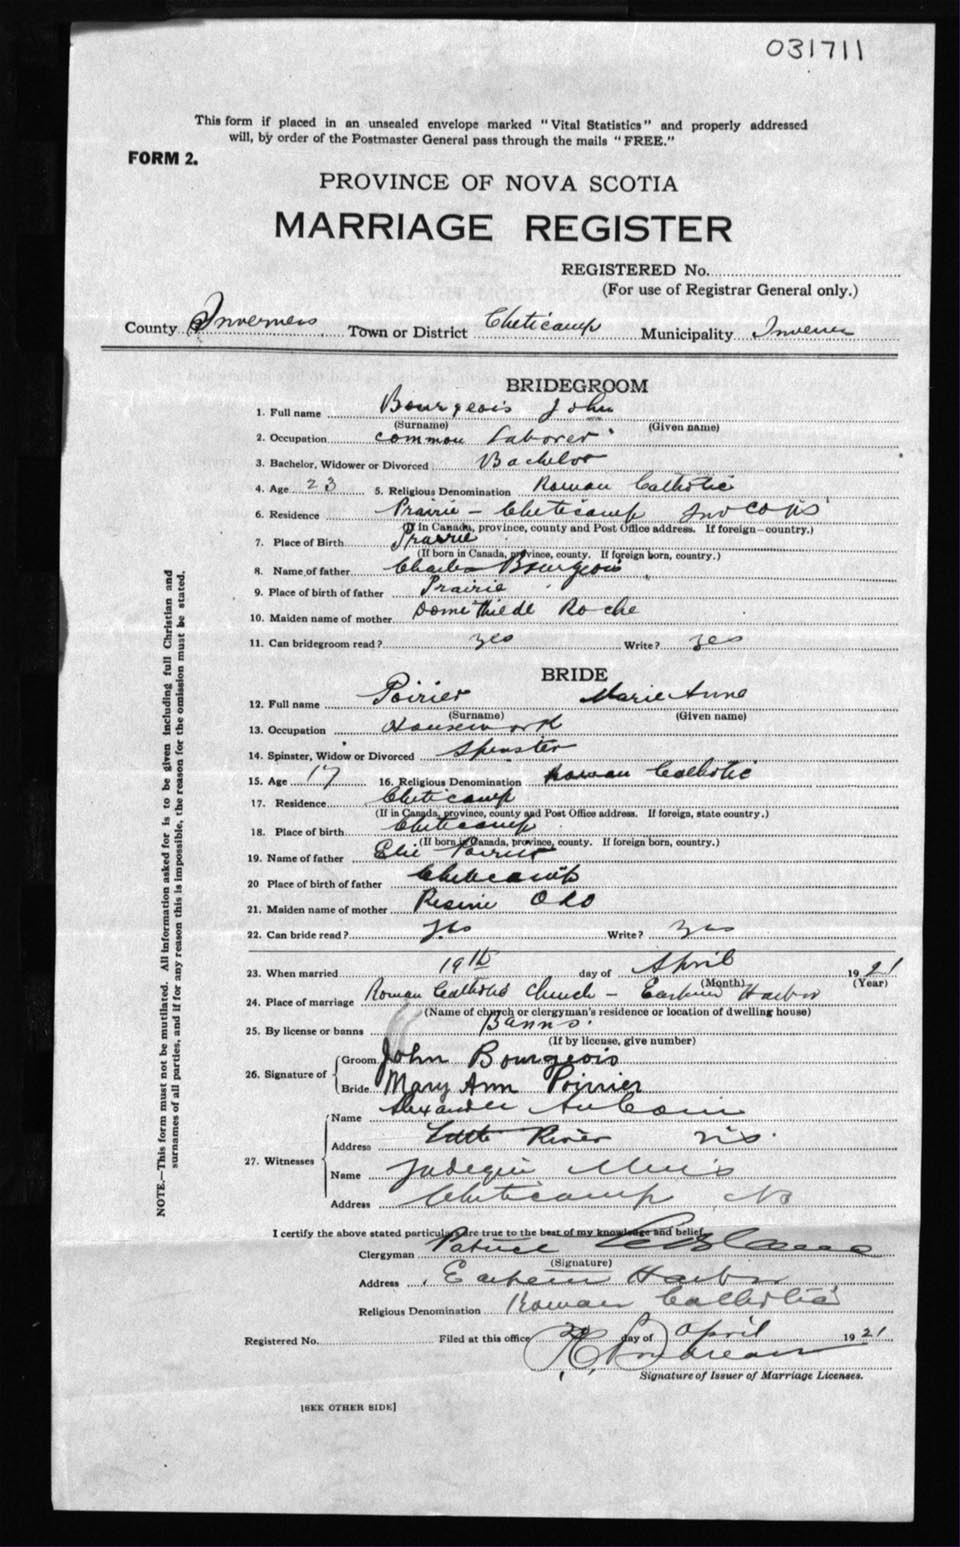 031711
This form if placed in an unsealed envelope marked "Vital Statistics" and properly addressed
will, by order of the Postmaster General pass through the mails "FREE."
FORM 2.
PROVINCE OF NOVA SCOTIA
MARRIAGE REGISTER
REGISTERED No.
(For use of Registrar General only.)
County Inverness Town or District Cheticamp Municipality
BRIDEGROOM
1. Full name Bourgeois John
(Surname) (Given name)
2. Occupation common Laborer
3. Bachelor, Widower or Divorced Bachelor
4. Age 23 5. Religious Denomination Roman Catholic
6. Residence Prairie - Cheticamp
(If in Canada, province, county and Post Office address. If foreign-country.)
7. Place of Birth Prairie
(If born in Canada, province, county. If foreign born, country.)
8. Name of father Charles Bourgeois
9. Place of birth of father Prairie
10. Maiden name of mother Domethilde Roche
11. Can bridegroom read? yes Write? yes
BRIDE
12. Full name Poirier Marie Anne
(Surname) (Given name)
13. Occupation Housework
14. Spinster, Widow or Divorced Spinster
15. Age 17 16. Religious Denomination Roman Catholic
17. Residence Cheticamp
(If in Canada, province, county and Post Office address. If foreign, state country.)
18. Place of birth Cheticamp
(If born in Canada, province, county. If foreign born, country.)
19. Name of father Elie Poirier
20 Place of birth of father Cheticamp
21. Maiden name of mother
22. Can bride read? Yes Write? yes
23. When married 19th day of April 1921
(Month) (Year)
24. Place of marriage Roman Catholic Church - Eastern Harbor
(Name of church or clergyman's residence or location of dwelling house)
25. By license or banns Banns.
(If by license, give number)
26. Signature of Groom John Bourgeois
Bride Mary Ann Poirier
27. Witnesses
Name Alexander AuCoin
Address Little River NS.
Name
Address Cheticamp NS
I certify the above stated particulars are true to the best of my knowledge and belief.
Clergyman Patrice LeBlanc
(Signature)
Address Eastern Harbor
Religious Denomination Roman Catholic
Registered No. Filed at this office day of April 1921
Signature of Issuer of Marriage Licenses.
[SEE OTHER SIDE]
NOTE.—This form must not be mutilated. All information asked for is to be given including full Christian and
surnames of all parties, and if for any reason this is impossible, the reason for the omission must be stated.